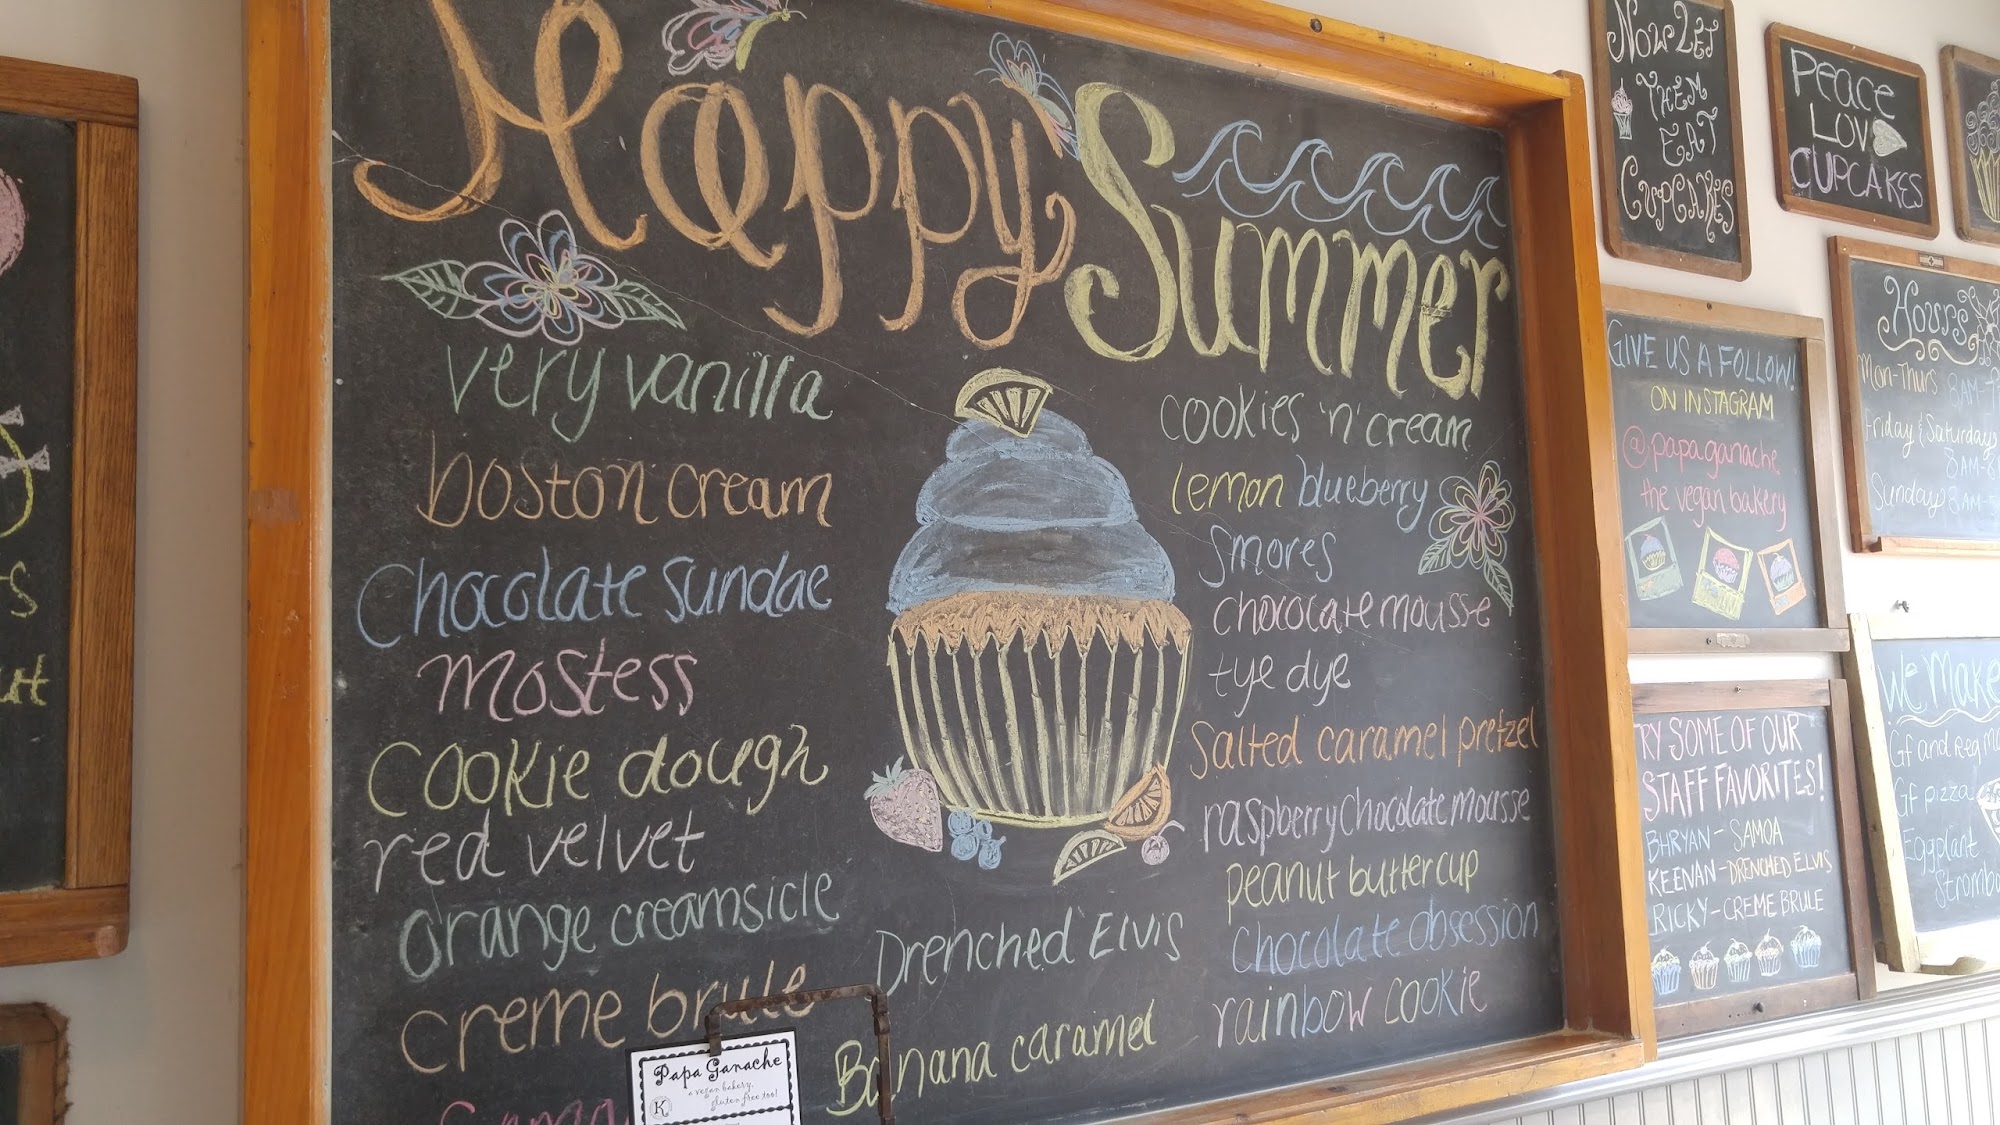 Happy Summer
very vanilla
boston cream
Chocolate sundae
mostess
cookie dough
red velvet
orange creamsicle
creme brule
Drenched Elvis
Banana caramel
cookies 'n' cream
lemon blueberry
smores
chocolate mousse
tye dye
Salted caramel pretzel
raspberry chocolate mousse
peanut butter cup
Chocolate obsession
rainbow cookie
Papa Ganache
a vegan bakery,
gluten free too!
K
Now Let
Them
Eat
Cupcakes
Peace
Lov
Cupcakes
Give us a follow!
on Instagram
@papa.ganache
the vegan bakery
Hours
Mon-Thurs 8AM-
Friday & Saturday
8AM-
Sunday 8AM-
RY SOME OF OUR
STAFF FAVORITES!
BHRYAN - SAMOA
KEENAN - DRENCHED ELVIS
RICKY - CREME BRULE
We Make
GF and Reg
GF pizza
Eggplant
Strombo